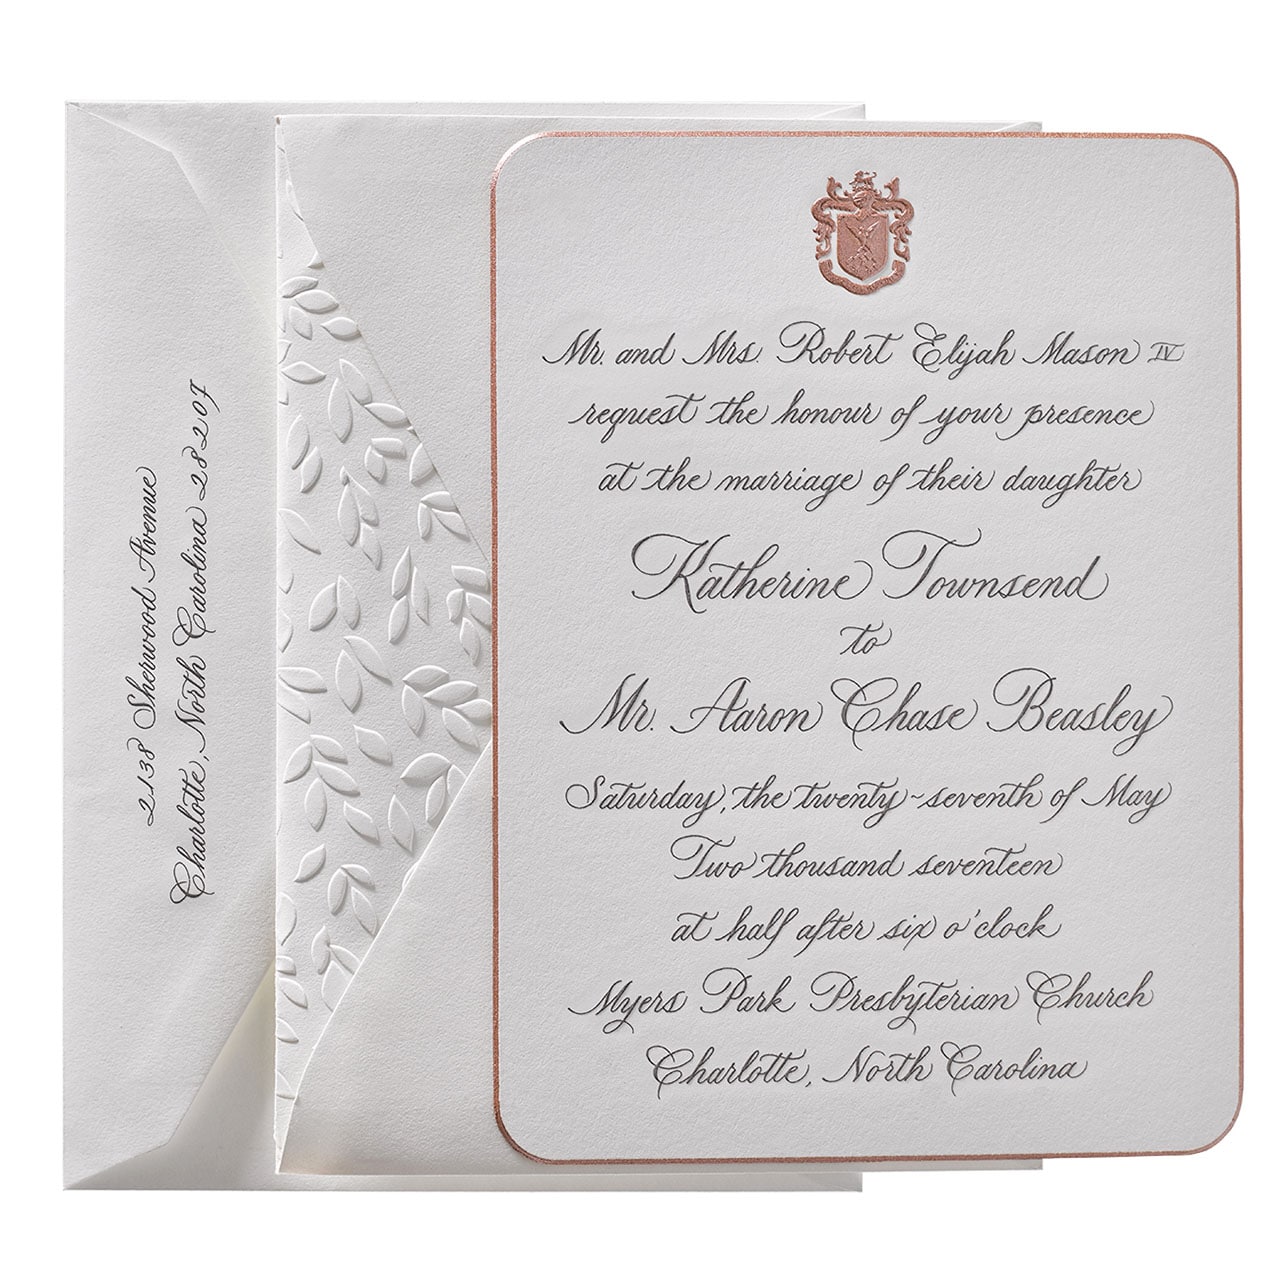 2138 Sherwood Avenue
Charlotte, North Carolina 28207
Mr. and Mrs. Robert Elijah Mason IV
request the honour of your presence
at the marriage of their daughter
Katherine Townsend
to
Mr. Aaron Chase Beasley
Saturday, the twenty~seventh of May
Two thousand seventeen
at half after six o'clock
Myers Park Presbyterian Church
Charlotte, North Carolina